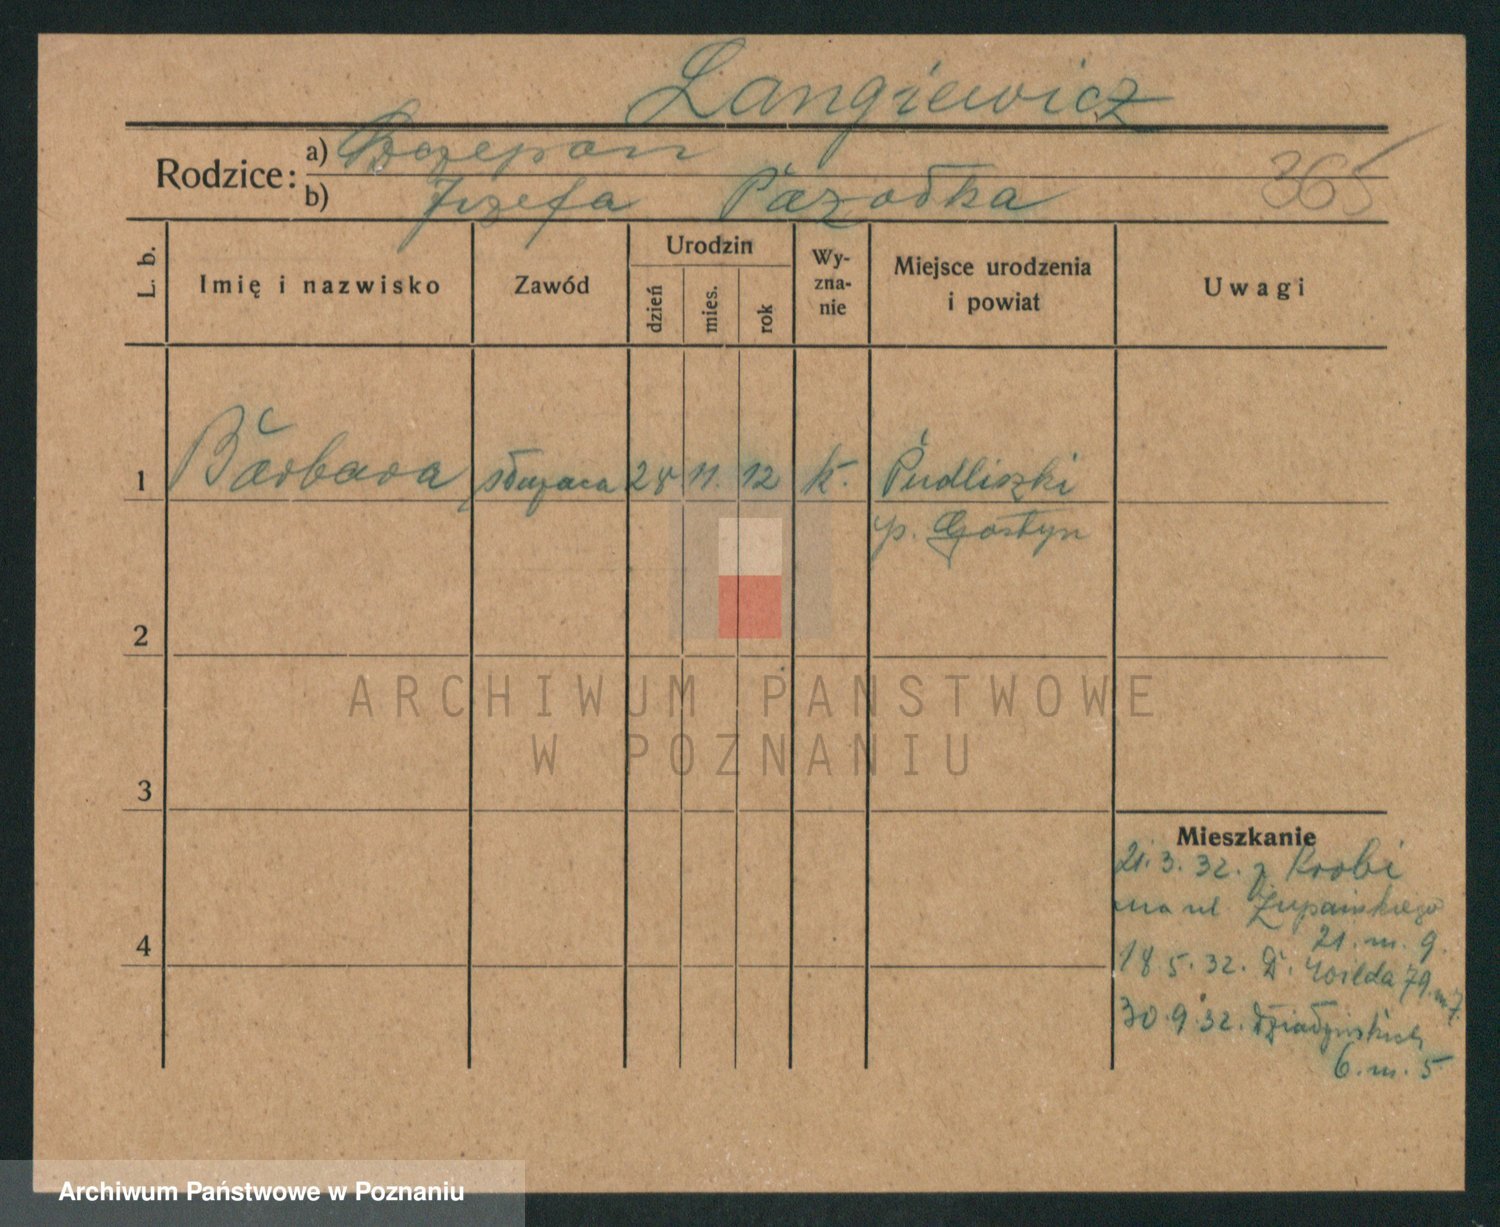 Langiewicz
Rodzice: a) Szczepan
b) Józefa
365
L. b.
Imię i nazwisko
Zawód
Urodzin
dzień
mies.
rok
Wy-
zna-
nie
Miejsce urodzenia
i powiat
Uwagi
1 Barbara służąca 28 11. 12 k. Pudliszki
p. Gostyn
2
3
4
Mieszkanie
21.3.32. z Krobi
na ul. Żupańskiego
21. m. 9.
18.5.32. D. Wilda 79. m 7.
30.9.32. Działyńskich
6. m. 5
ARCHIWUM PANSTWOWE
W POZNANIU
Archiwum Państwowe w Poznaniu